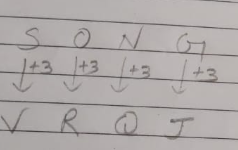 S O N G
↓+3 ↓+3 ↓+3 ↓+3
V R Q J